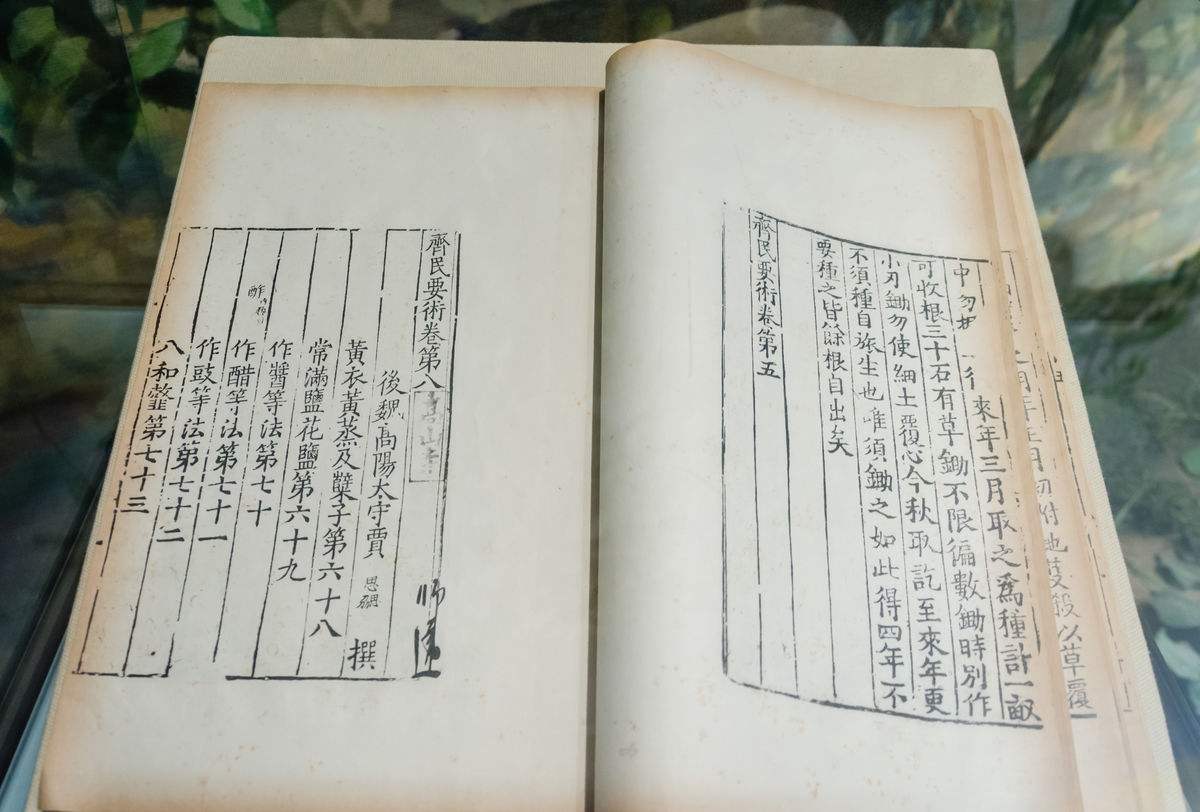 月初附地芟殺以草覆
中勿 來年三月取之爲種計一畝
可收根三十石有草鋤不限徧數鋤時別作
小刃鋤勿使細土覆心今秋取訖至來年更
不須種自旅生也唯須鋤之如此得四年不
要種之皆餘根自出矣
齊民要術卷第五
齊民要術卷第八
後魏高陽太守賈思勰撰
黃衣黃蒸及糵子第六十八
常滿鹽花鹽第六十九
作醬等法第七十
酢
作醋等法第七十一
作豉等法第七十二
八和虀第七十三